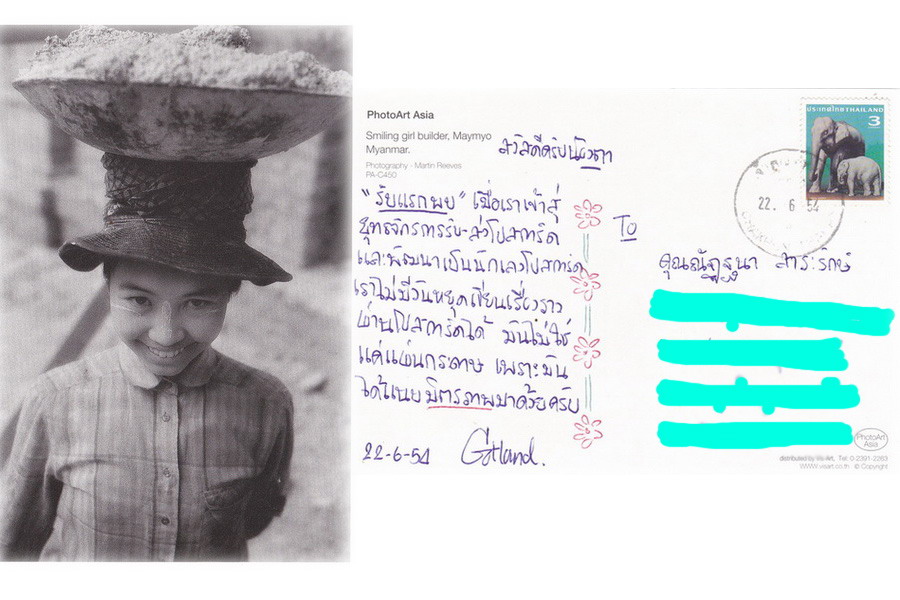 PhotoArt Asia
Smiling girl builder, Maymyo
Myanmar.
Photography - Martin Reeves
PA-C450
สวัสดีครับน้องตา
"รับแรกพบ" เมื่อเราเข้าสู่
ยุทธจักรการรับ-ส่งโปสการ์ด
และพัฒนาเป็นนักเลงโปสการ์ด
เราไม่มีวันหยุดเขียนเรื่องราว
ผ่านโปสการ์ดได้ มันไม่ใช่
แค่แผ่นกระดาษ เพราะมัน
ได้แนบมิตรภาพมาด้วยครับ
22-6-54
To
ประเทศไทย THAILAND
3
22. 6 54
PhotoArt
Asia
distributed by Vis-Art, Tel: 0-2391-2263
© Copyright